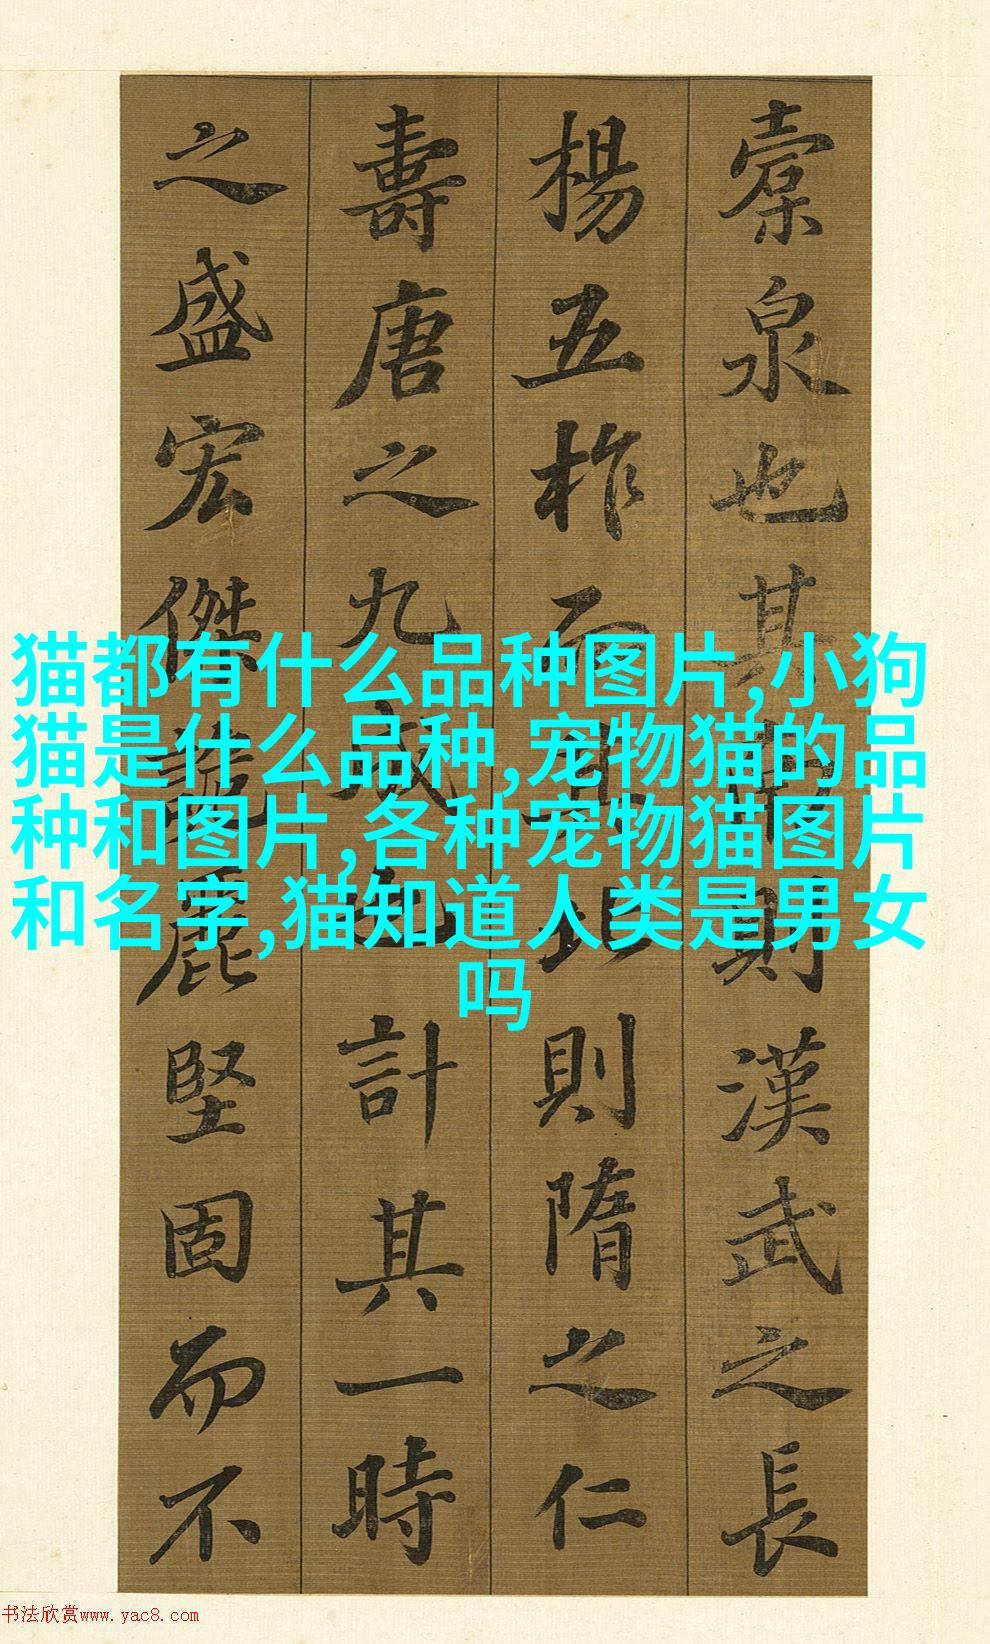 槖泉也其南則漢武之長
楊五柞而其北則隋之仁
壽唐之九成也計其一時
之盛宏傑詭麗堅固而不
猫都有什么品种图片,小狗
猫是什么品种,宠物猫的品
种和图片,各种宠物猫图片
和名字,猫知道人类是男女
吗
书法欣赏www.yac8.com